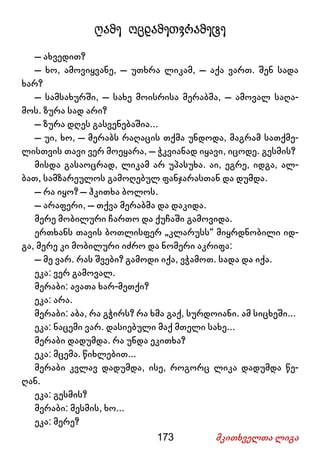 ღამე ოცდამეთვრამეტე
— ახვედით?
— ხო, ამოვიყვანე, — უთხრა ლიკამ, — აქა ვართ. შენ სადა
ხარ?
— სამსახურში, — სახე მოისრისა მერაბმა, — ამოვალ საღა-
მოს. ზურა სად არი?
— ზურა დღეს გასვენებაშია...
— უი, ხო, — მერაბს რაღაცის თქმა უნდოდა, მაგრამ სათქმე-
ლისთვის თავი ვერ მოეყარა, — ჭკვიანად იყავი, იცოდე. გესმის?
მისდა გასაოცრად, ლიკამ არ უპასუხა. აი, ეგრე, იდგა, ალ-
ბათ, სამზარეულოს გამოღებულ ფანჯარასთან და დუმდა.
— რა იყო? — ჰკითხა ბოლოს.
— არაფერი, — თქვა მერაბმა და დაკიდა.
მერე მობილური ჩართო და ქუჩაში გამოვიდა.
ერთხანს თავის ბოთლისფერ „კლარუსს“ მიყრდნობილი იდ-
გა, მერე კი მობილური იძრო და ნომერი აკრიფა:
— მე ვარ. რას შვები? გამოდი იქა, ვჭამოთ. სადა და იქა.
ეკა: ვერ გამოვალ.
მერაბი: ავათა ხარ-მეთქი?
ეკა: არა.
მერაბი: აბა, რა გჭირს? რა ხმა გაქ, სურდოიანი. ამ სიცხეში...
ეკა: ნაცემი ვარ. დასიებული მაქ მთელი სახე...
მერაბი დადუმდა. რა უნდა ეკითხა?
ეკა: მცემა. წიხლებით...
მერაბი კვლავ დადუმდა, ისე, როგორც ლიკა დადუმდა წე-
ღან.
ეკა: გესმის?
მერაბი: მესმის, ხო...
ეკა: მერე?
173 მკითხველთა ლიგა